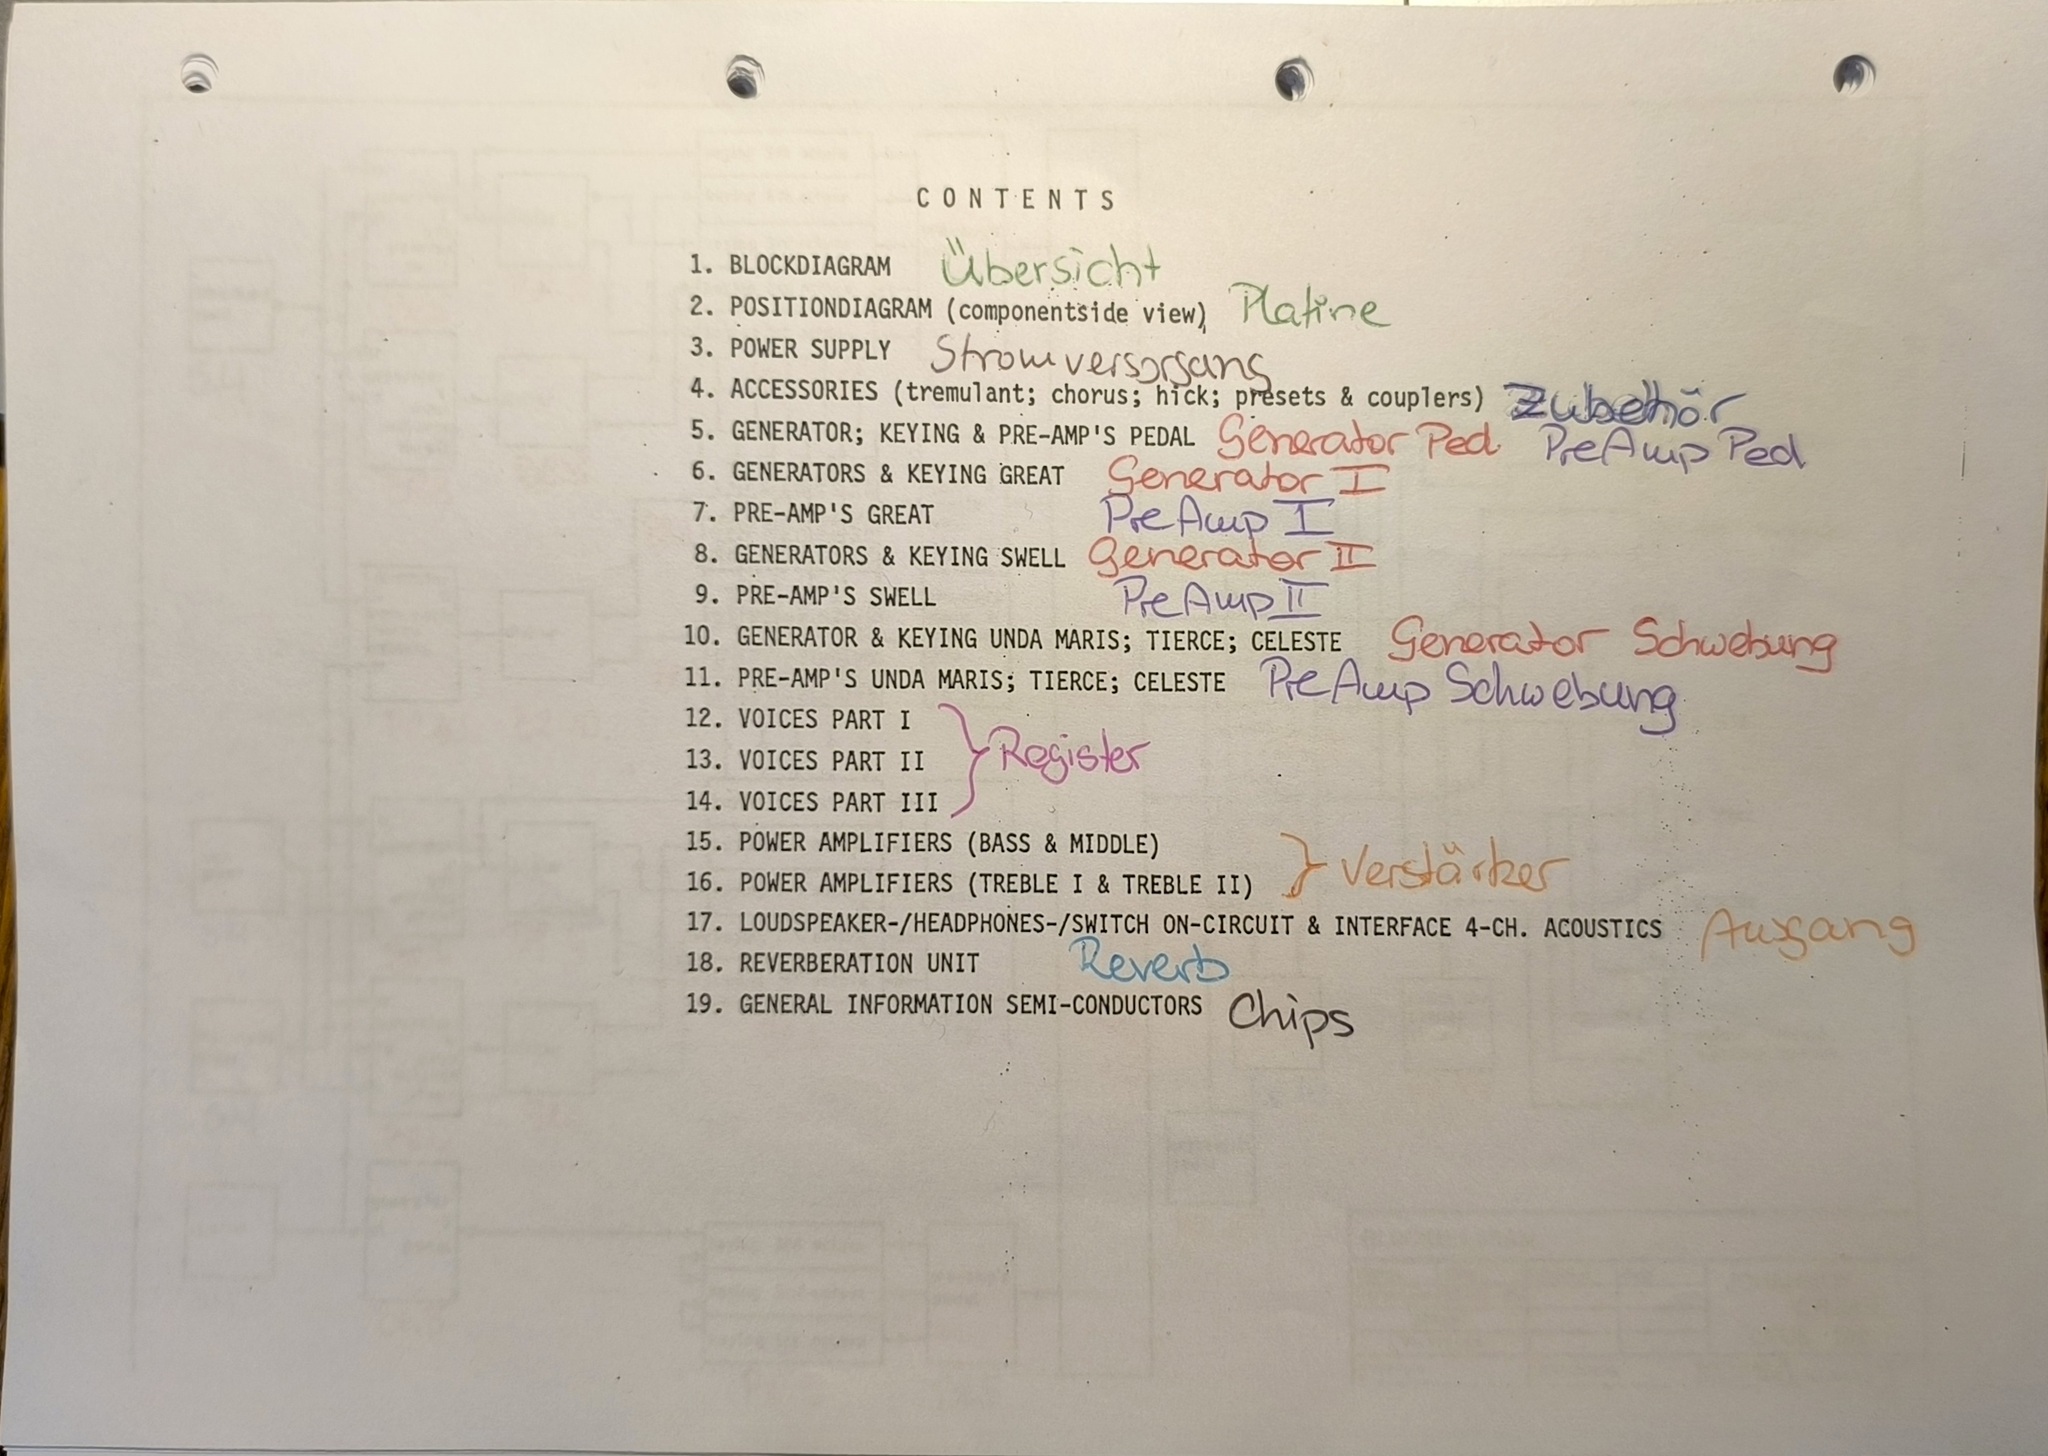 CONTENTS
1. BLOCKDIAGRAM Übersicht
2. POSITIONDIAGRAM (componentside view) Platine
3. POWER SUPPLY Stromversorgang
4. ACCESSORIES (tremulant; chorus; hick; presets & couplers) Zubehör
5. GENERATOR; KEYING & PRE-AMP'S PEDAL Generator Ped. PreAmp Ped
6. GENERATORS & KEYING GREAT Generator I
7. PRE-AMP'S GREAT PreAmp I
8. GENERATORS & KEYING SWELL Generator II
9. PRE-AMP'S SWELL PreAmp II
10. GENERATOR & KEYING UNDA MARIS; TIERCE; CELESTE Generator Schwebung
11. PRE-AMP'S UNDA MARIS; TIERCE; CELESTE PreAmp Schwebung
12. VOICES PART I
13. VOICES PART II Register
14. VOICES PART III
15. POWER AMPLIFIERS (BASS & MIDDLE)
Verstärker
16. POWER AMPLIFIERS (TREBLE I & TREBLE II)
17. LOUDSPEAKER-/HEADPHONES-/SWITCH ON-CIRCUIT & INTERFACE 4-CH. ACOUSTICS Ausgang
18. REVERBERATION UNIT Reverb
19. GENERAL INFORMATION SEMI-CONDUCTORS Chips